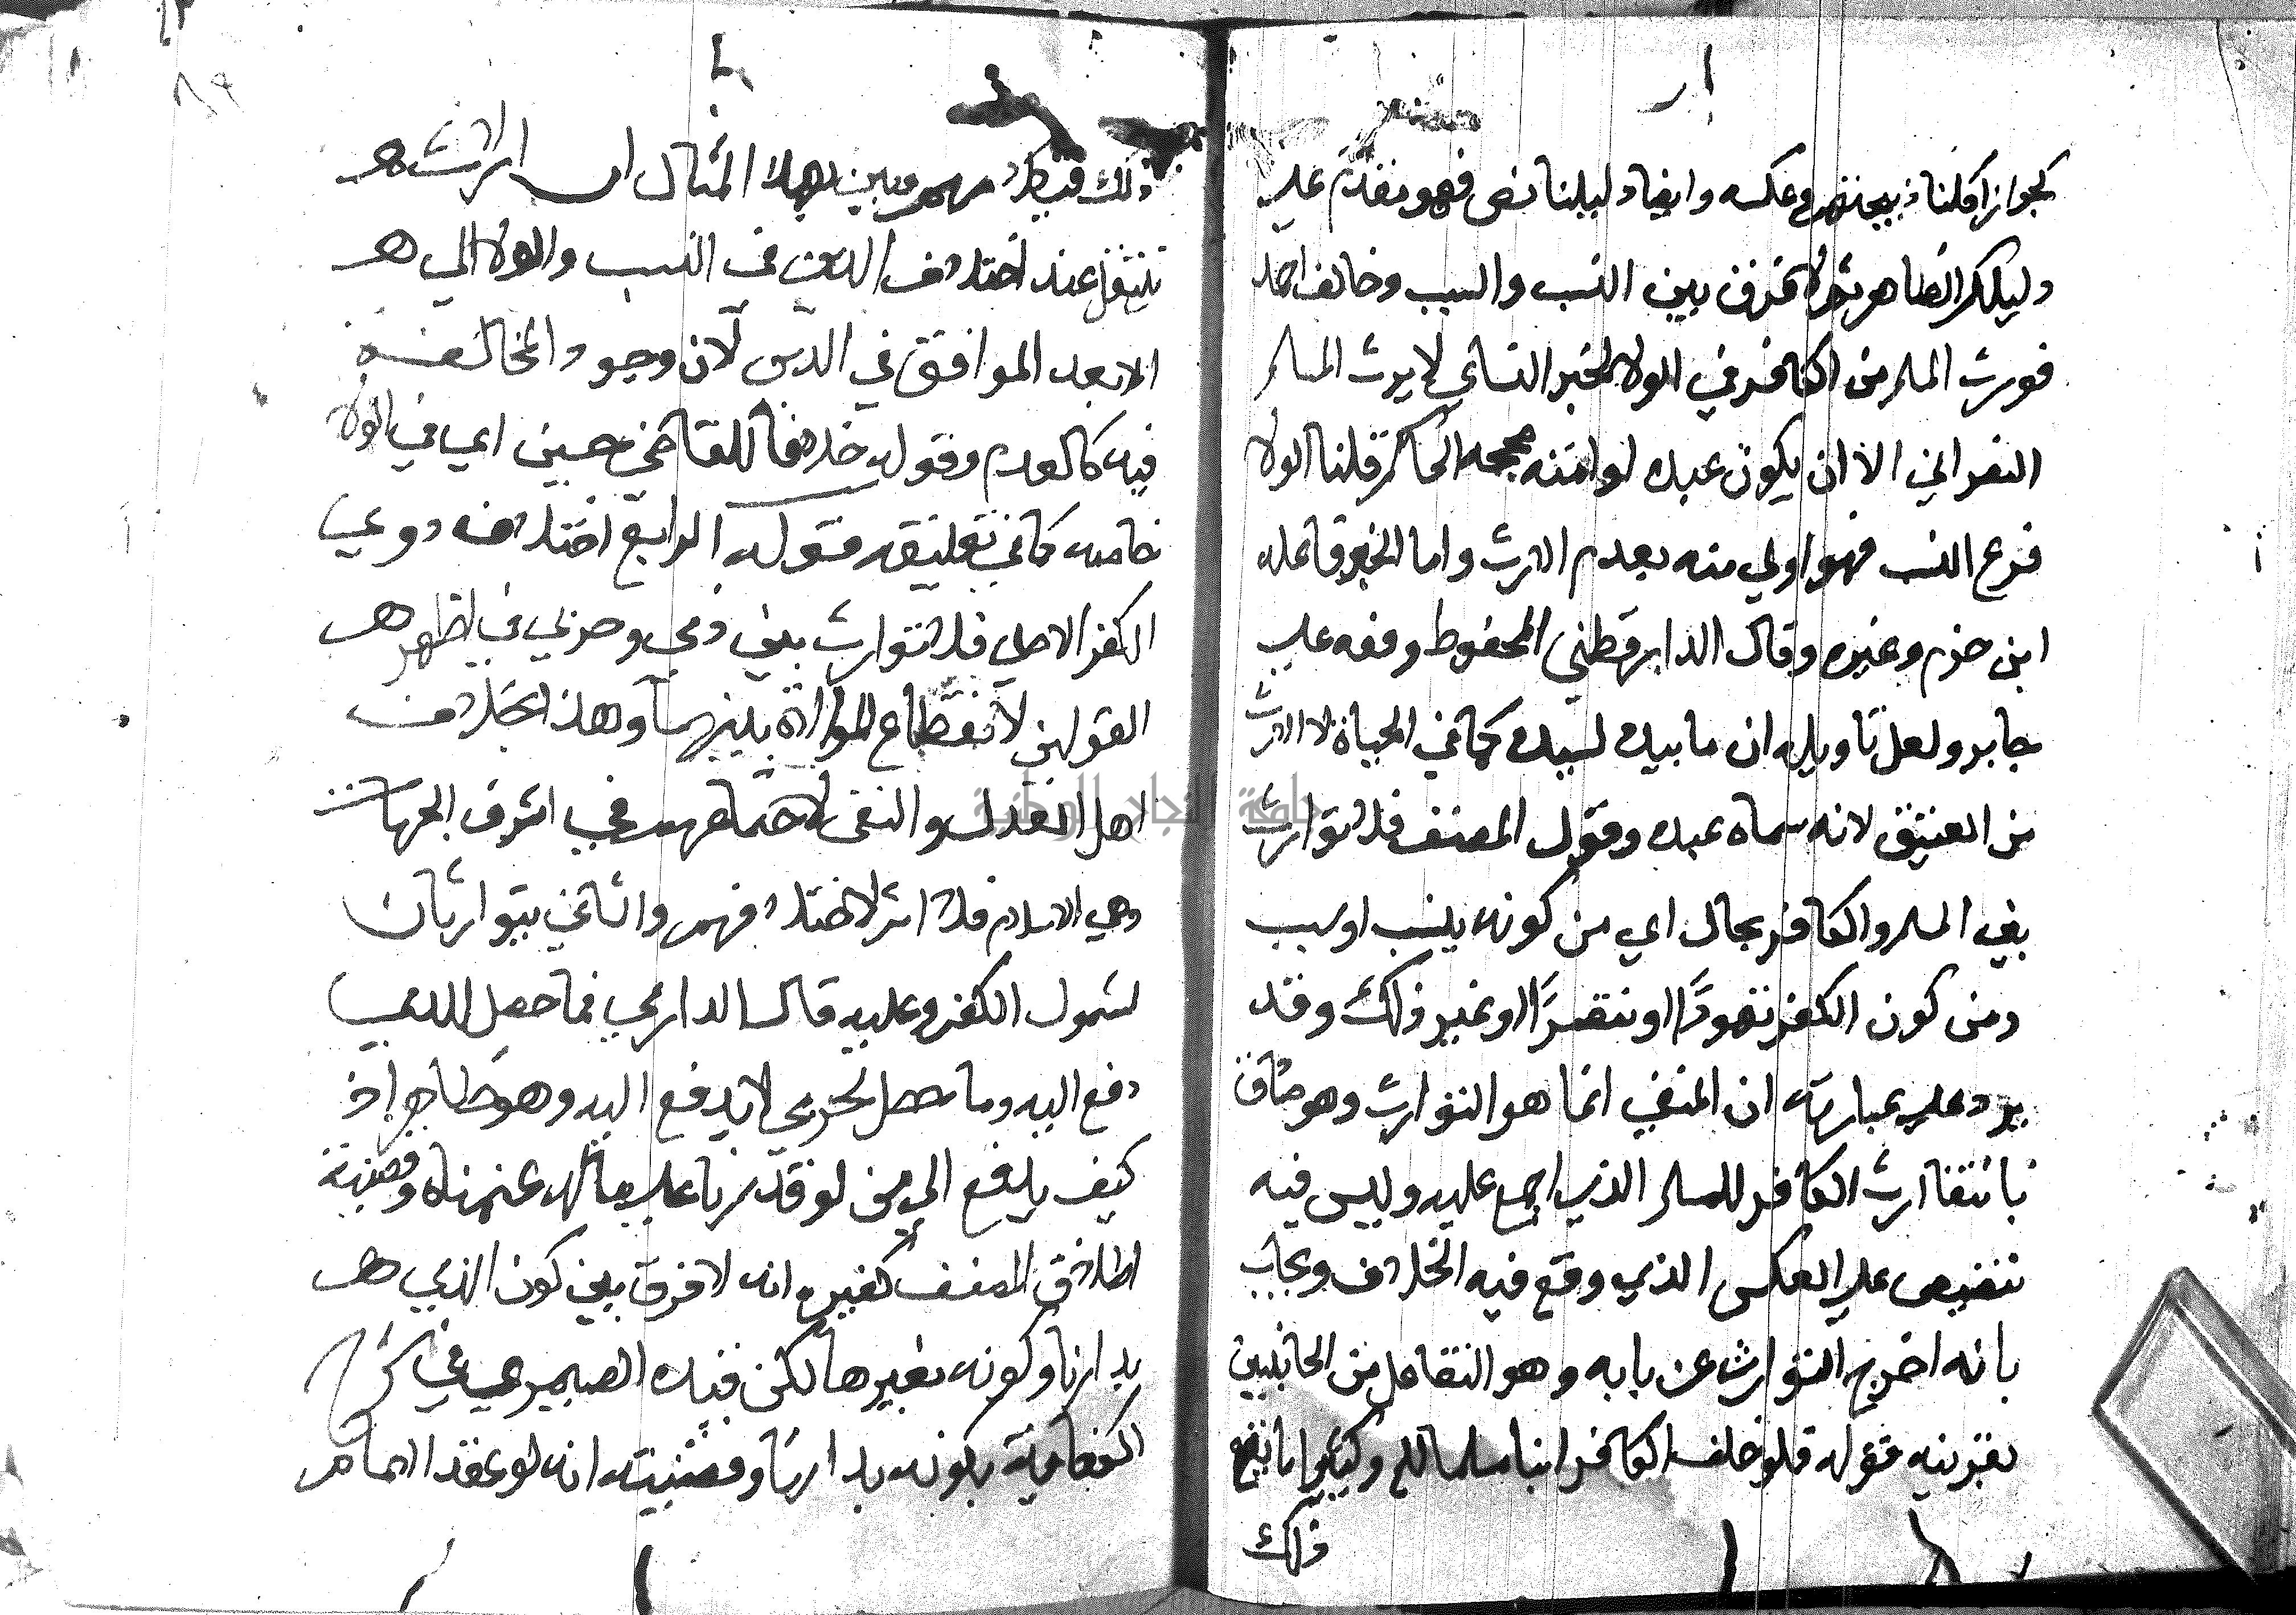 كجواز اكلنا ذبيحتهم وعكسه وايضا دليلنا نص فهو مقدم علي
دليلكم الظاهر ثم لا فرق بين النسب والسبب وخالف احمد
فورث المسلم من الكافر في الولا لخبر النساي لا يرث المسلم
النصراني الا ان يكون عبده او امته صححه الحاكم قلنا الولا
فرع النسب فهو اولي منه بعدم الارث واما الخبر فاعله
ابن حزم وغيره وقال الدارقطني المحفوظ وقفه علي
جابر ولعل تاويله ان ما بيده لسيده كما في الحياة لا الارث
من العتيق لانه سماه عبده وقول المصنف فلا توارث
بين المسلم والكافر بحال اي من كونه بنسب او سبب
ومن كون الكفر تهودا او تنصرا او غير ذلك وقد
يرد علي عبارته ان المنفي انما هو التوارث وهو صادق
بانتفا ارث الكافر للمسلم الذي اجمع عليه وليس فيه
تنصيص علي العكس الذي وقع فيه الخلاف ويجاب
بانه اخرج التوارث عن بابه وهو التفاعل من الجانبين
بقرينه قوله فلو خلف الكافر ابنا مسلما الخ وكثيرا ما يقع
ذلك
ذلك في كلامهم وتبين بهذا المثال ان الارث
ينتقل عند اختلاف الدين في النسب والولا الي
الابعد الموافق في الدين لان وجود المخالف
فيه كالعدم وقوله خلافا للقاضي حسين اي في الولا
خاصه كما في تعليقه قوله الرابع اختلاف ذوي
الكفر الاصلي فلا توارث بين ذمي وحربي في اظهر
القولين لانقطاع الموالاة بينهما وهذا بخلاف
اهل العدل والبغي لاجتماعهم في اشرف الجهات
وهي الاسلام فلا اثر لاختلافهم والثاني يتوارثان
لشمول الكفر وعليه قال الدارمي فما حصل للذمي
دفع اليه وما حصل لحربي لا يدفع اليه وهو ظاهر اذ
كيف يدفع الي من لو قدرنا علي ماله غنمناه وقضية
اطلاق المصنف كغيره انه لا فرق بين كون الذمي
بدارنا وكونه بغيرها لكن قيده الصيمري في شرح
الكفاية بكونه بدارنا وقضيته انه لو عقد الامام